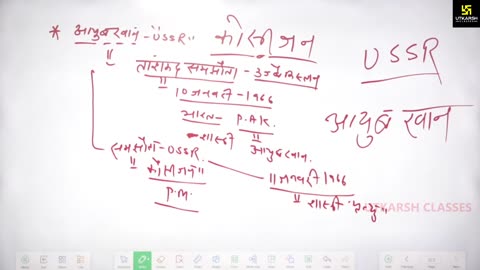 * आयुबखान - USSR
कोसीजन
USSR
ताशकंद समझौता - उज्बेकिस्तान
10 जनवरी - 1966
आयुब खान
भारत - P.A.K.
शास्त्री
आयुबखान.
समझौता - USSR
कोसीजन
11 जनवरी 1966
P.M.
शास्त्री मृत्यु
UTKARSH CLASSES
UTKARSH
CLASSES